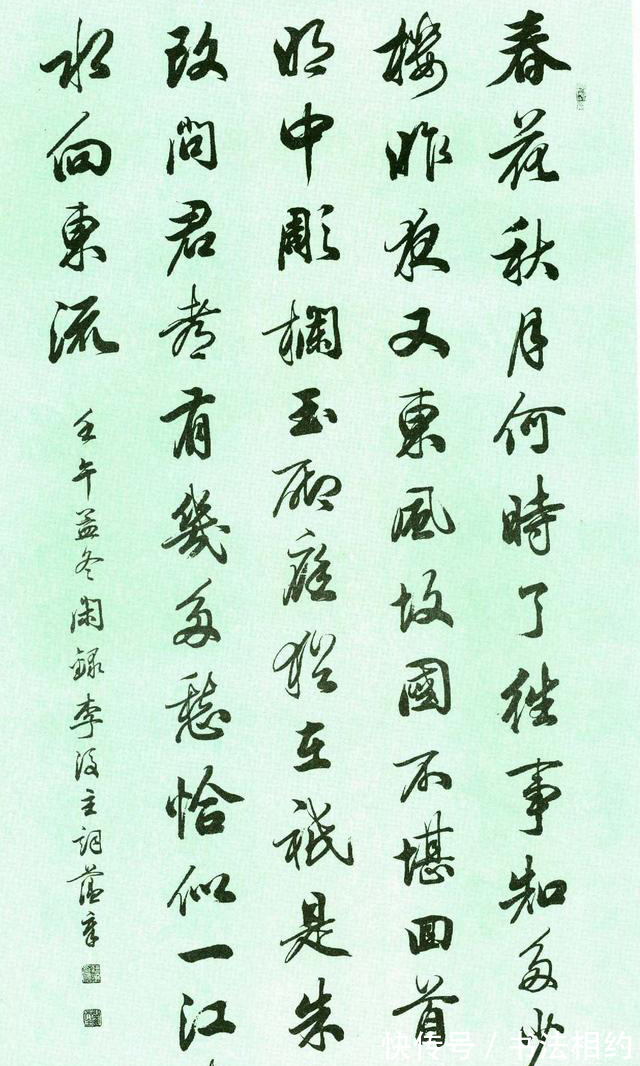 春花秋月何時了往事知多少
樓昨夜又東風故國不堪回首
明中彫欄玉砌應猶在祗是朱
改問君都有幾多愁恰似一江
水向東流
壬午孟冬閑録李後主詞蕰章
快传号 / 书法相约